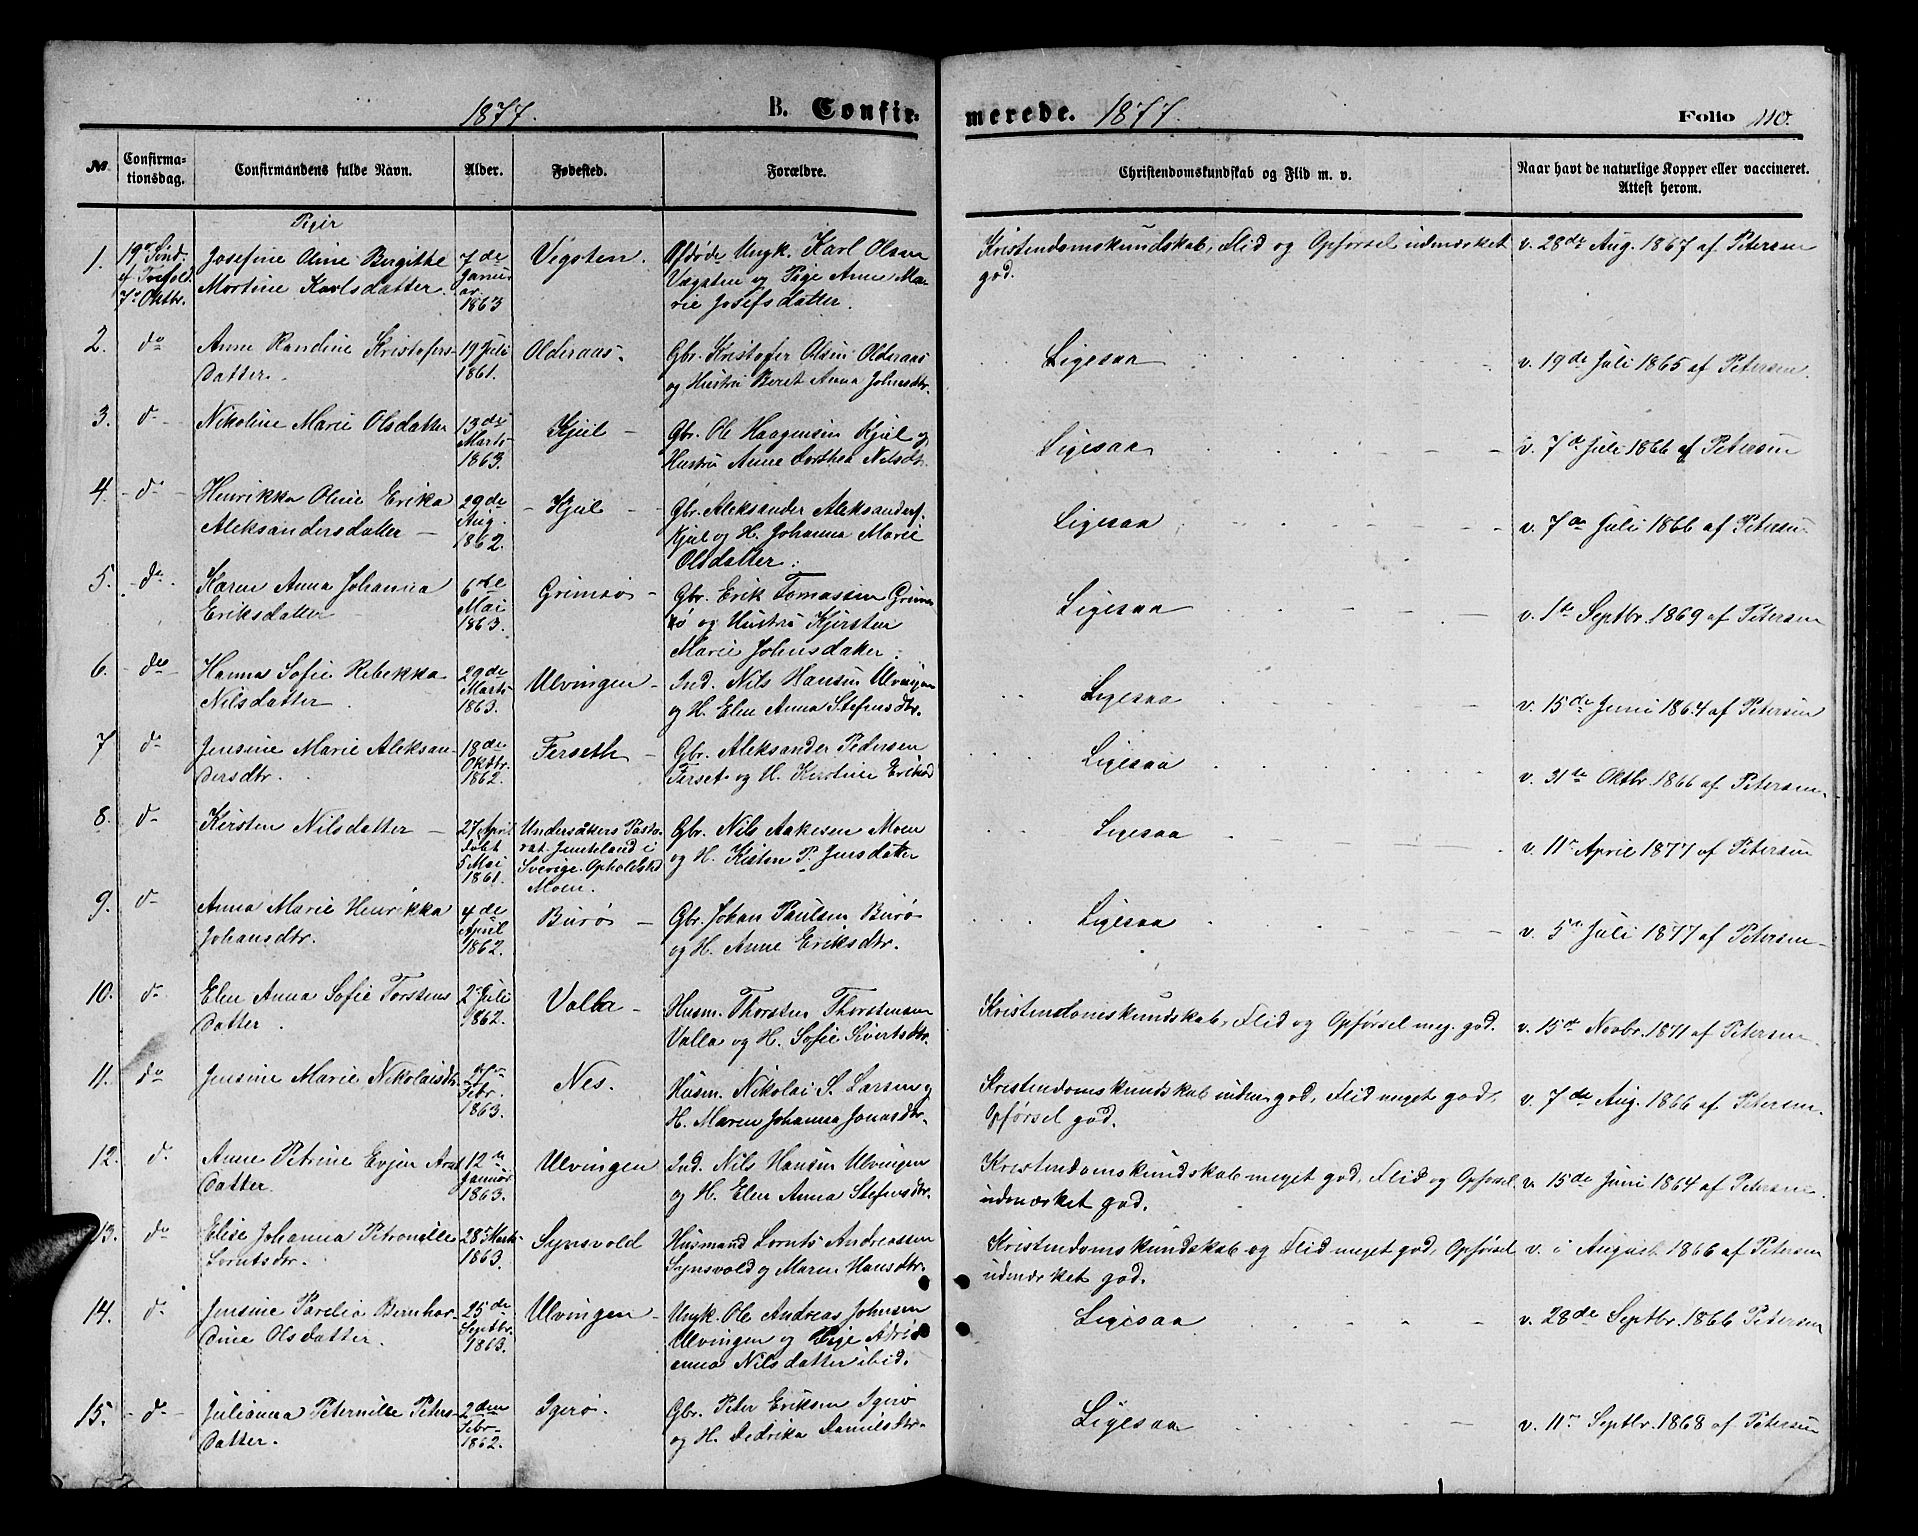 1877. B. Confir-
merede. 1877. Folio 110.
№
Confirma-
tionsdag.
Confirmandens fulde Navn.
Alder.
Fødested.
Forældre.
Christendomskundskab og Flid m. v.
Naar havt de naturlige Kopper eller vaccineret.
Attest herom.
Piger
1.
19de Sønd.
7de Oktbr.
Josefine Oline Bergithe
Martine Karlsdatter.
7de
Janu-
ar.
1863
Vigoten.
Afdøde Ungk. Karl Olsen
Vægoten og Pige Anne Ma-
rie Josefsdatter.
Kristendomskundskab, Flid og Opførsel udmærket
god.
v. 28de Aug. 1867 af Petersen
2. do
Anne Randine Kristofers-
datter.
19 Juli
1861.
Olderaas.
Gbr. Kristofer Olsen Olderaas
og Hustru Beret Anna Johnsdtr.
Ligesaa
v. 19de Juli 1865 af Petersen.
3. do
Nikoline Marie Olsdatter
13de
Marts
1863.
Kjul
Gbr. Ole Haagensen Kjul og
Hustru Anne Dorthea Nilsdt.
Ligesaa
v. 7de Juli 1866 af Petersen
4. do
Henrikka Oline Erika
Aleksandersdatter
29de
Aug.
1862.
Kjul
Gbr. Aleksander Aleksanders.
Kjul og H. Johanna Marie
Olsdatter.
Ligesaa
v. 7de Juli 1866 af Petersen
5. do
Karen Anna Johanna
Eriksdatter
6te
Mai
1863.
Grimsø
Gbr. Erik Tomassen Grims
sø og Hustru Kjersten
Marie Johnsdatter.
Ligesaa
v. 1ste Septbr. 1869 af Petersen
6. do
Hanna Sofie Rebekka
Nilsdatter
29de
Marts
1863.
Ulvingen
Ind. Nils Hansen Ulvingen
og H. Elen Anna Stefensdtr.
Ligesaa
v. 15de Juni 1864 af Petersen
7 do
Jensine Marie Aleksan-
dersdtr.
18de
Oktbr.
1862.
Forseth
Gbr. Aleksander Pedersen
Forset og H. Karoline Eriksd
Ligesaa
v. 31te Oktbr 1866 af Petersen
8. do
Kirsten Nilsdatter
27 April
døbt
5 Mai
1861.
Undersåkers Pasto-
rat. Jemteland i
Sverige. Opholdsted
Moen.
Gbr. Nils Aakesen Moen
og H. Kisten P. Jensdatter
Ligesaa
v. 11te April 1877 af Petersen
9. do
Anna Marie Henrikka
Johansdtr.
4de
April
1862.
Burø
Gbr. Johan Paulsen Burø
og H. Anne Eriksdtr.
Ligesaa
v. 5te Juli 1877 af Petersen
10. do
Elen Anna Sofie Torstens
datter.
2 Juli
1862.
Valla
Husm. Thorsten Thorstensen
Valla og H. Sofie Sivertsdtr.
Kristendomskundskab, Flid og Opførsel meg. god.
v. 15de Novbr. 1871 af Petersen
11. do
Jensine Marie Nikolaisdtr.
Febr.
1863.
Nes.
Husm. Nikolai S. Larsen og
H. Maren Johanna Jonasdtr.
Kristendomskundskab udm. god, Flid meget god,
Opførsel god.
v. 7de Aug. 1866 af Petersen.
12. do
Anne Petrine Evjen Arnt
datter.
12te
Januar
1863.
Ulvingen
Ind. Nils Hansen Ulvingen
og H. Elen Anna Stefensdtr.
Kristendomskundskab meget god, Flid og Opførsel
udmærket god.
v. 15de Juni 1864 af Petersen.
13. do
Elise Johanna Petronelle
Lorntsdtr.
28de Marts
1863.
Synsvold
Husmand Lornts Andreassen
Synsvold og Maren Hansdtr.
Kristendomskundskab og Flid meget god, Opførsel
udmærket god.
v. i August 1866 af Petersen
14. do
Jensine Parelia Bernhar-
dine Olsdatter.
25de
Septbr.
1863.
Ulvingen
Ungk. Ole Andreas Johnsen
Ulvingen og Pige Adri-
anna Nilsdatter ibid.
Ligesaa
v. 28de Septbr. 1866 Petersen
15. do
Julianna Peternille Peters-
datter.
2den
Febr.
1862.
Igerø.
Gbr. Peter Eriksen Igerø
og H. Fredrika Danielsdtr.
Ligesaa
v. 11te Septbr. 1868 af Petersen